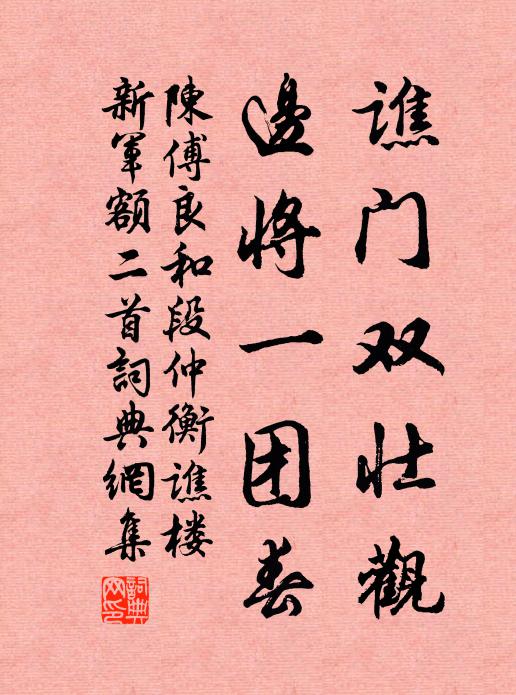 谯门双壮觀
邊将一团春
陳傅良和段仲衡谯楼
新军额二首詞典網集
詞典網印